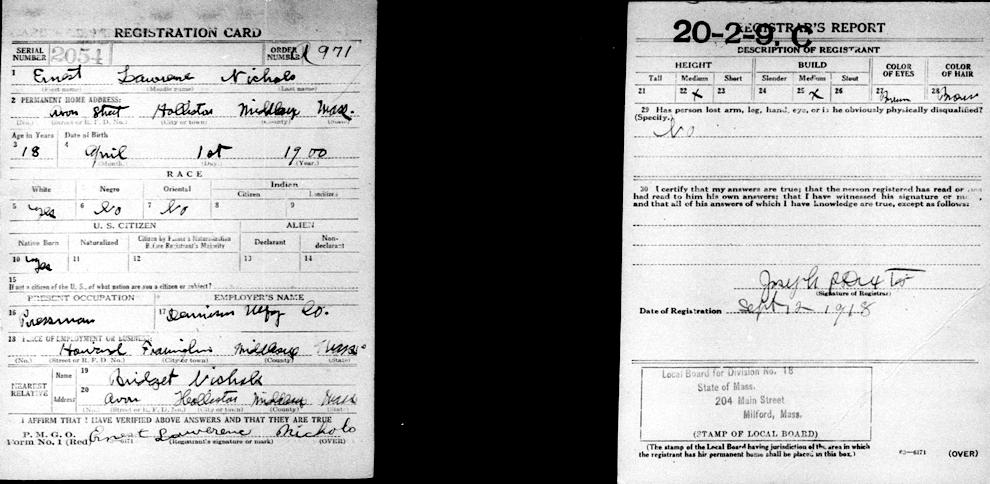 REGISTRATION CARD
SERIAL NUMBER 2054 ORDER NUMBER 1971
1 Ernest Lawrence Nichols
(First name) (Middle name) (Last name)
2 PERMANENT HOME ADDRESS:
Avon Street Holliston Middlesex Mass.
(No.) (Street or R. F. D. No.) (City or town) (County) (State)
Age in Years Date of Birth
3 18 4 April 1st 1900
(Month.) (Day.) (Year.)
RACE
White Negro Oriental Indian
Citizen Noncitizen
5 Yes 6 No 7 No 8 9
U. S. CITIZEN ALIEN
Native Born Naturalized Citizen by Father's Naturalization Before Registrant's Majority Declarant Non-declarant
10 Yes 11 12 13 14
15
If not a citizen of the U. S., of what nation are you a citizen or subject?
PRESENT OCCUPATION EMPLOYER'S NAME
16 Pressman 17 Dennison Mfg Co.
18 PLACE OF EMPLOYMENT OR BUSINESS:
Howard Framingham Middlesex Mass
(No.) (Street or R. F. D. No.) (City or town) (County) (State)
NEAREST RELATIVE
Name 19 Bridget Nichols
Address 20 Avon Holliston Middlesex Mass
(No.) (Street or R. F. D. No.) (City or town) (County) (State)
I AFFIRM THAT I HAVE VERIFIED ABOVE ANSWERS AND THAT THEY ARE TRUE
P. M. G. O.
Form No. 1 (Red) Ernest Lawrence Nichols
(Registrant's signature or mark) (OVER)
20-2-9. C
REGISTRAR'S REPORT
DESCRIPTION OF REGISTRANT
HEIGHT BUILD COLOR OF EYES COLOR OF HAIR
Tall Medium Short Slender Medium Stout
21 22 x 23 24 25 x 26 27 Brown 28 Brown
29 Has person lost arm, leg, hand, eye, or is he obviously physically disqualified?
(Specify.)
No
30 I certify that my answers are true; that the person registered has read or has
had read to him his own answers; that I have witnessed his signature or mark,
and that all of his answers of which I have knowledge are true, except as follows:
Joseph
(Signature of Registrar)
Date of Registration Sept 12 1918
Local Board for Division No. 18
State of Mass.
204 Main Street
Milford, Mass.
(STAMP OF LOCAL BOARD)
(The stamp of the Local Board having jurisdiction of the area in which
the registrant has his permanent home shall be placed in this box.)
03—6171 (OVER)